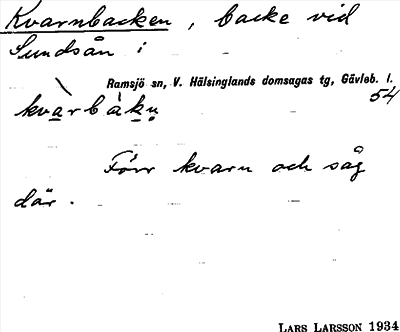 Kvarnbacken, backe vid
Sundsån i
Ramsjö sn, V. Hälsinglands domsagas tg, Gävleb. l.
54
kvàrbàkn̥
Förr kvarn och såg
där.
LARS LARSSON 1934